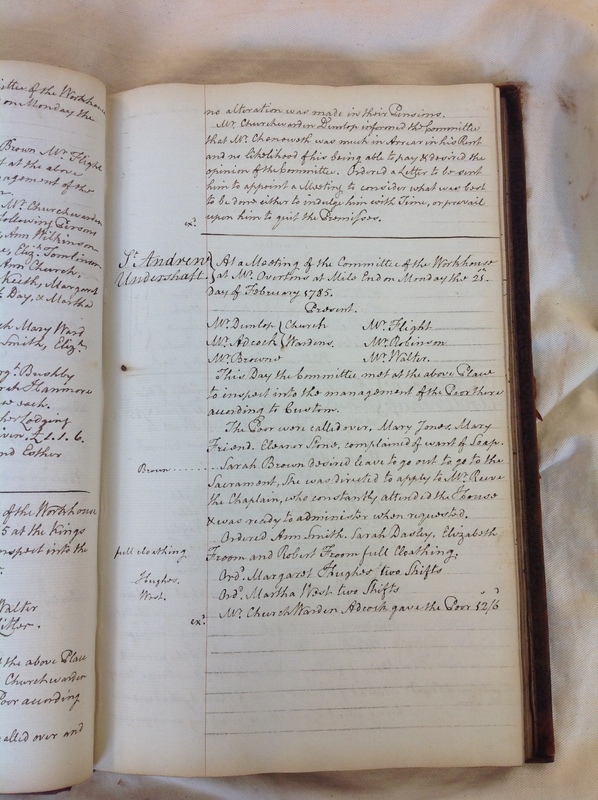 ittee of the Workhouse
on Monday the
Brown Mr. Flight
t at the above
nagement of the
Mr. Churchwarden
following Persons
Ann Wilkinson
Eliz.h Tomlinson
Ann Church,
Keith, Margaret
Day, & Martha
Mary Ward
Smith, Eliz.h
Bushby
rah Hanmore
each.
Lodging
ven, £1.1.6.
nd Esther
of the Workhouse
5 at the Kings
inspect into the
Walter
the above Place
Churchwarden
Poor according
alled over and
no alteration was made in their Pensions.
Mr. Churchwarden Dunlop informed the Committee
that Mr. Chenoweth was much in Arrear in his Rent
and no likelihood of his being able to pay & desired the
opinion of the Committee. Ordered a Letter to be sent
him to appoint a Meeting to consider what was best
to be done either to indulge him with Time, or prevail
upon him to quit the Premisses.
ex.d
St. Andrew
Undershaft
At a Meeting of the Committee of the Workhouse
at Mr. Overtons at Mile End on Monday the 21.
day of February 1785.
Present.
Mr. Dunlop } Church Mr. Flight
Mr. Adcock } Wardens. Mr. Robinson
Mr. Browne Mr. Walter.
This Day the Committee met at the above Place
to inspect into the management of the Poor there
according to Custom.
The Poor were called over. Mary Jones, Mary
Friend, Eleanor Pone, complained of want of Soap.
Brown Sarah Brown desired leave to go out to go to the
Sacrament, She was directed to apply to Mr. Reeve
the Chaplain, who constantly attended the House
& was ready to administer when requested.
Ordered Ann Smith, Sarah Dasley, Elizabeth
full cloathing Froom and Robert Froom full Cloathing.
Hughes. Ord.d Margaret Hughes two Shifts
West. Ord.d Martha West two Shifts
ex.d Mr. Church Warden Adcock gave the Poor 12/6